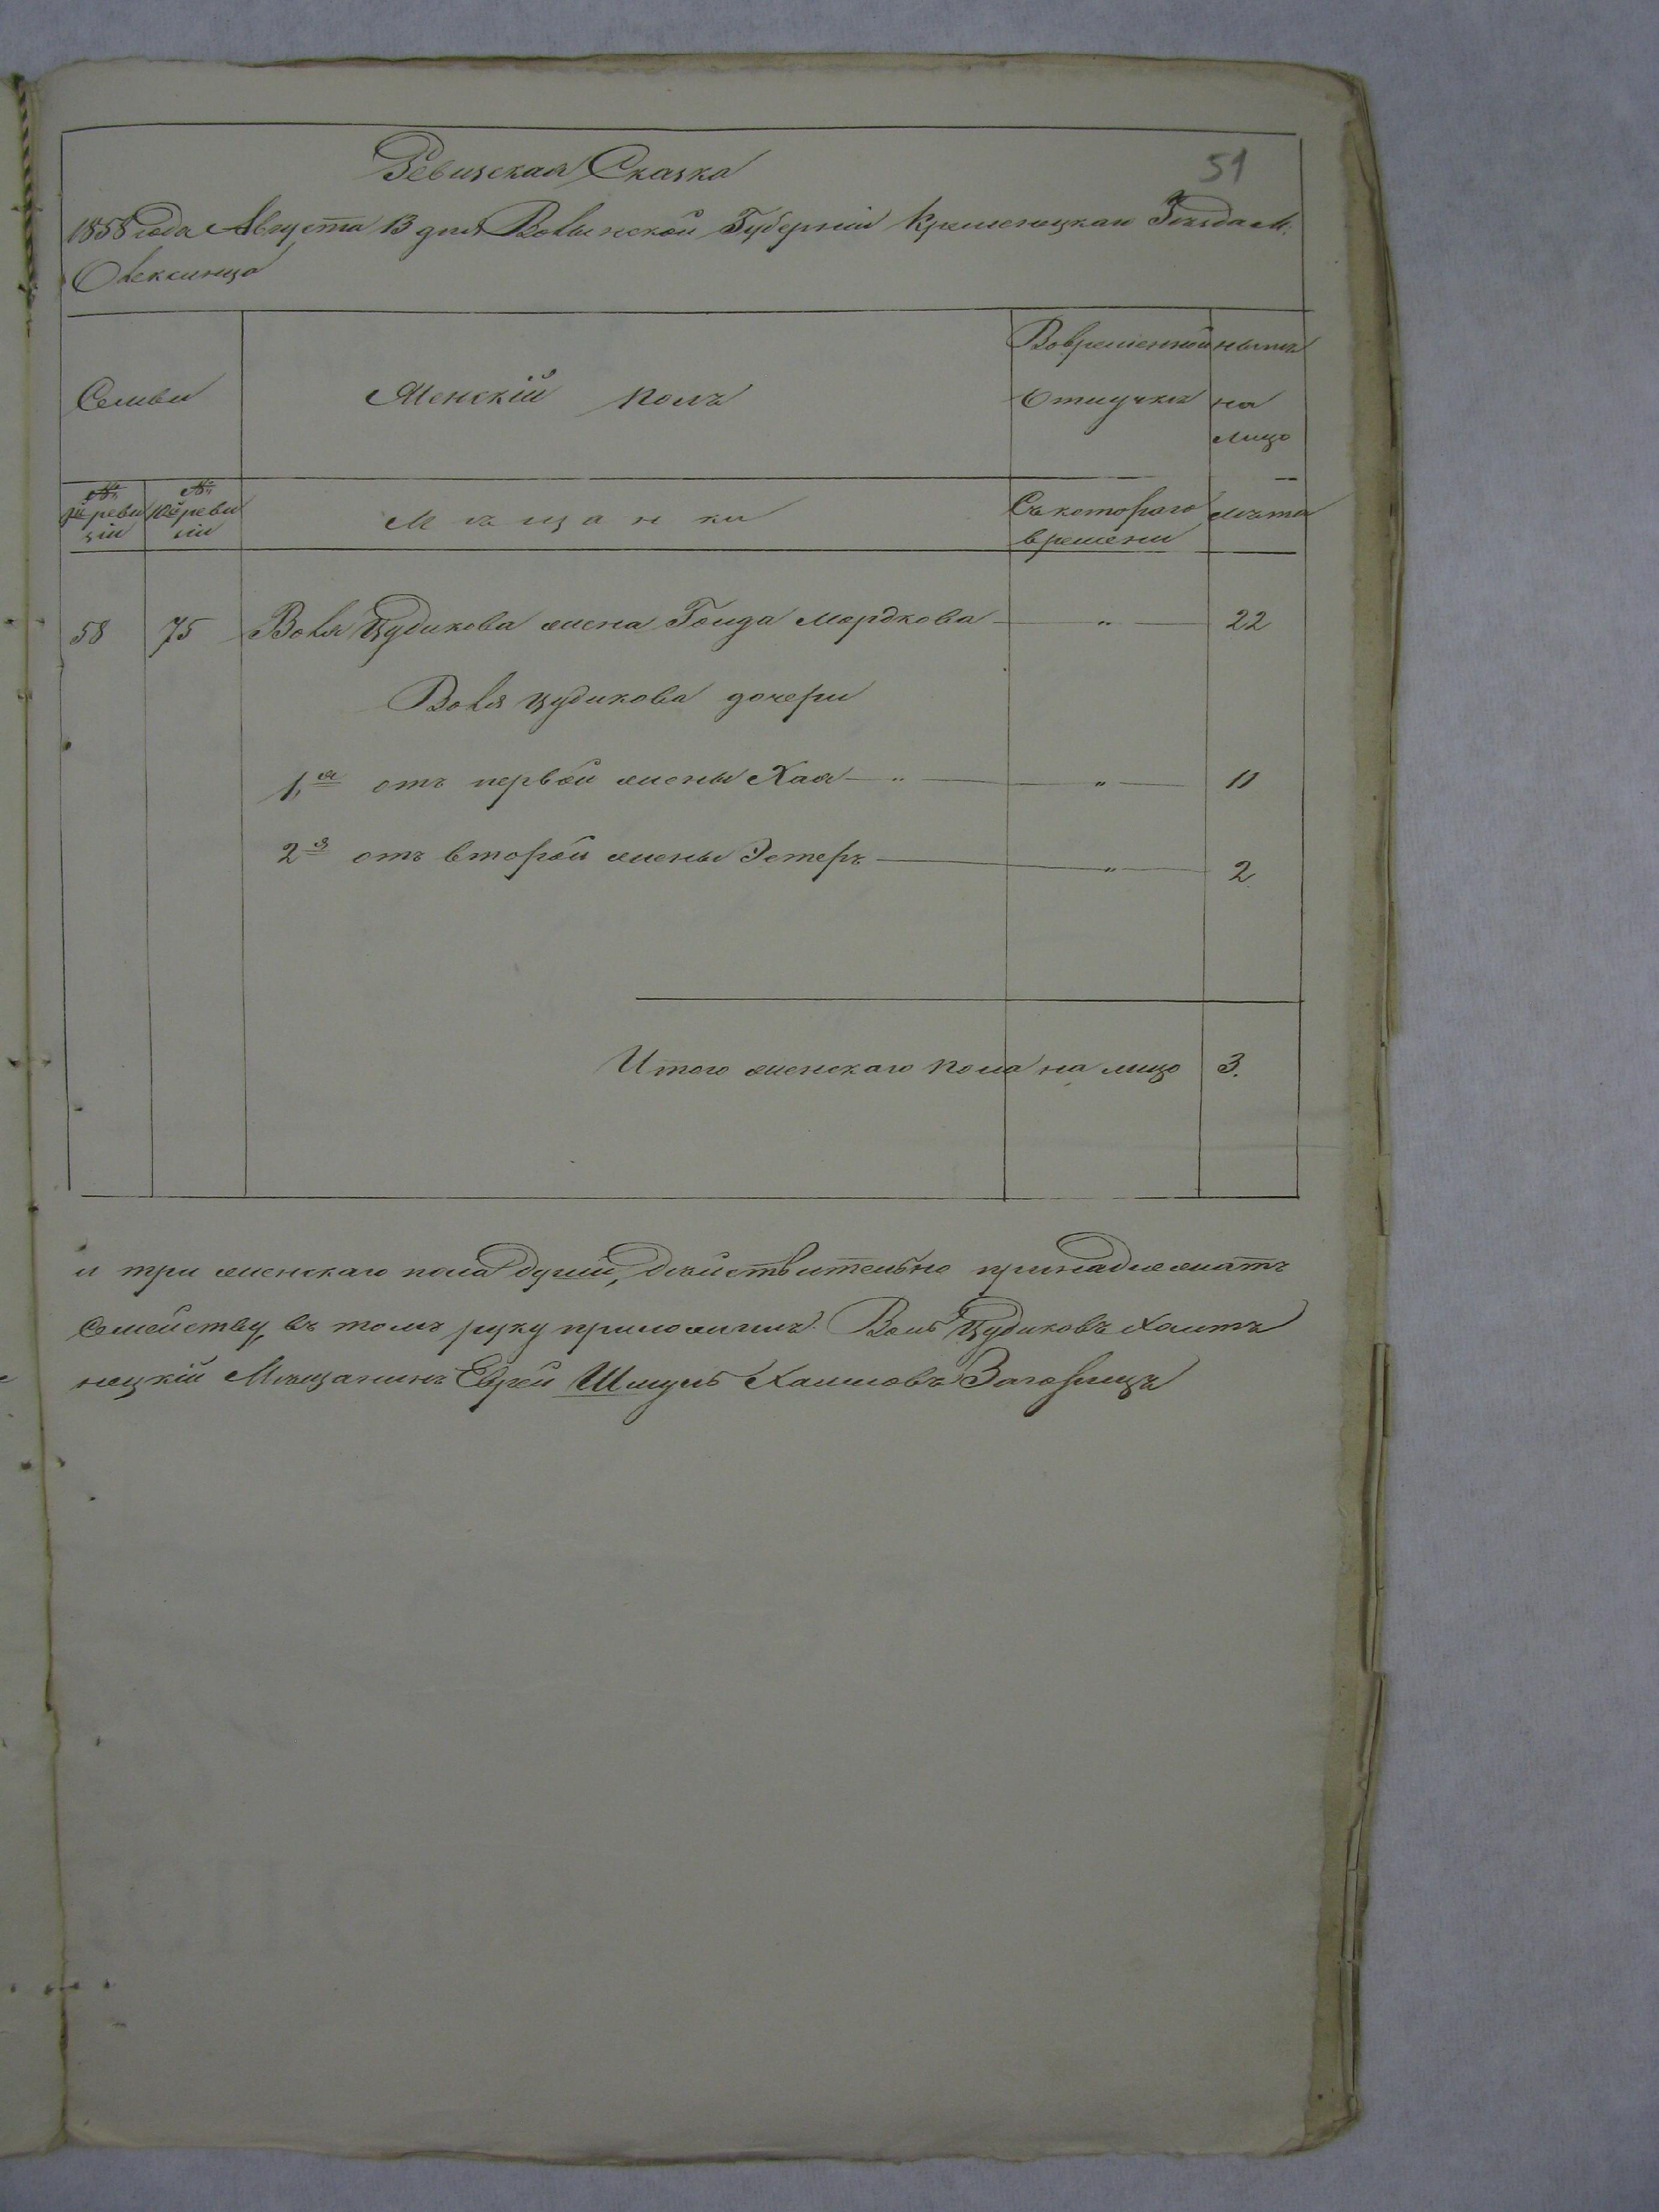 51
Ревизская Сказка
1858 года Августа 13 дня Волынской Губернии Кременецкаго Поѣзда М.
Олексинца
Семьи
Женскій полъ
Вовременной
Отлучкѣ
нынѣ
на
лицо
№
9й реви
зіи
№
10й реви
зіи
Мѣщанки
Съ котораго
времени
лѣта
58 75 Воля Цудикова жена Гоида Мордкова — " — 22
Воля Цудикова дочери
1я отъ первой жены Хая — " — " — 11
2я отъ второй жены Эстеръ — " — 2
Итого женскаго пола на лицо 3.
и три женскаго пола души, дѣйствительно принадлежатъ
Семейству, въ томъ руку приложилъ Воль Цудиковъ
нецкій Мѣщанинъ Еврей Шмуль Хаимовъ